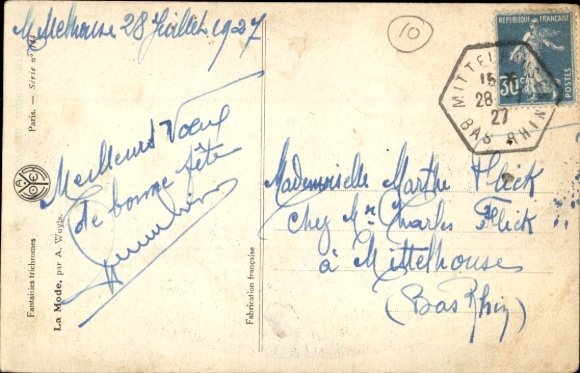 Mittelhouse 28 Juillet 1927
10
REPUBLIQUE FRANÇAISE
30c
POSTES
MITTELHAUS
15
28
27
BAS RHIN
Paris. — Série n°
Fantaisies trichromes
La Mode, par A. Wuyts.
Fabrication française
Meilleurs Voeux
de bonne fête
Mademoiselle Marthe Flick
Chez Mr Charles Flick
à Mittelhouse
(Bas Rhin)